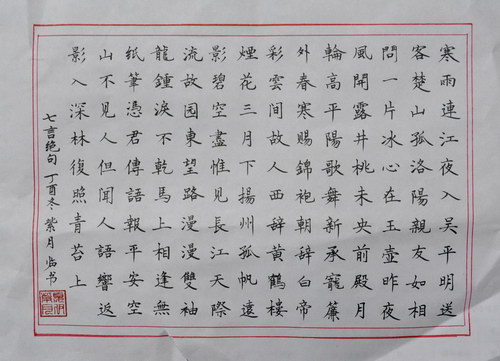 寒雨連江夜入吴平明送
客楚山孤洛陽親友如相
問一片冰心在玉壺昨夜
風開露井桃未央前殿月
輪高平陽歌舞新承寵簾
外春寒賜錦袍朝辭白帝
彩雲間故人西辭黄鶴樓
煙花三月下揚州孤帆遠
影碧空盡惟見長江天際
流故园東望路漫漫雙袖
龍鍾淚不乾馬上相逢無
纸筆憑君傳語報平安空
山不見人但聞人語響返
影入深林復照青苔上
七言绝句 丁酉冬 紫月 临书